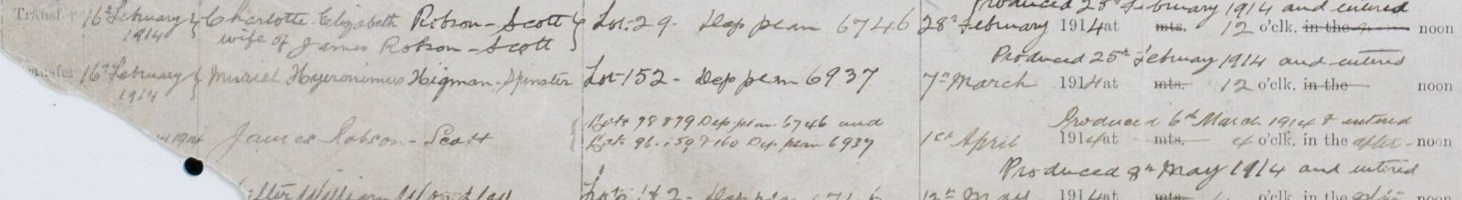 Produced 28th February 1914 and entered
Transfer 16th February { Charlotte Elizabeth Robson-Scott } Lot 29 - Dep plan 6746 28th February 1914 at mts. 12 o'clk. in the noon
1914 wife of James Robson-Scott
Produced 25th February 1914 and entered
ansfer 16th February { Muriel Hyeronimus Higman - Spinster Lot 152 - Dep plan 6937 7th March 1914 at mts. 12 o'clk. in the noon
1914
Produced 6th March 1914 & entered
James Robson-Scott { Lots 78 & 79 Dep. plan 6746 and
Lots 96. 159 & 160 Dep. plan 6937 1st April 1914 at mts. 4 o'clk. in the after-noon
Produced 8th May 1914 and entered
William Lots Dep plan May 1914 at mts. o'clk. in the noon